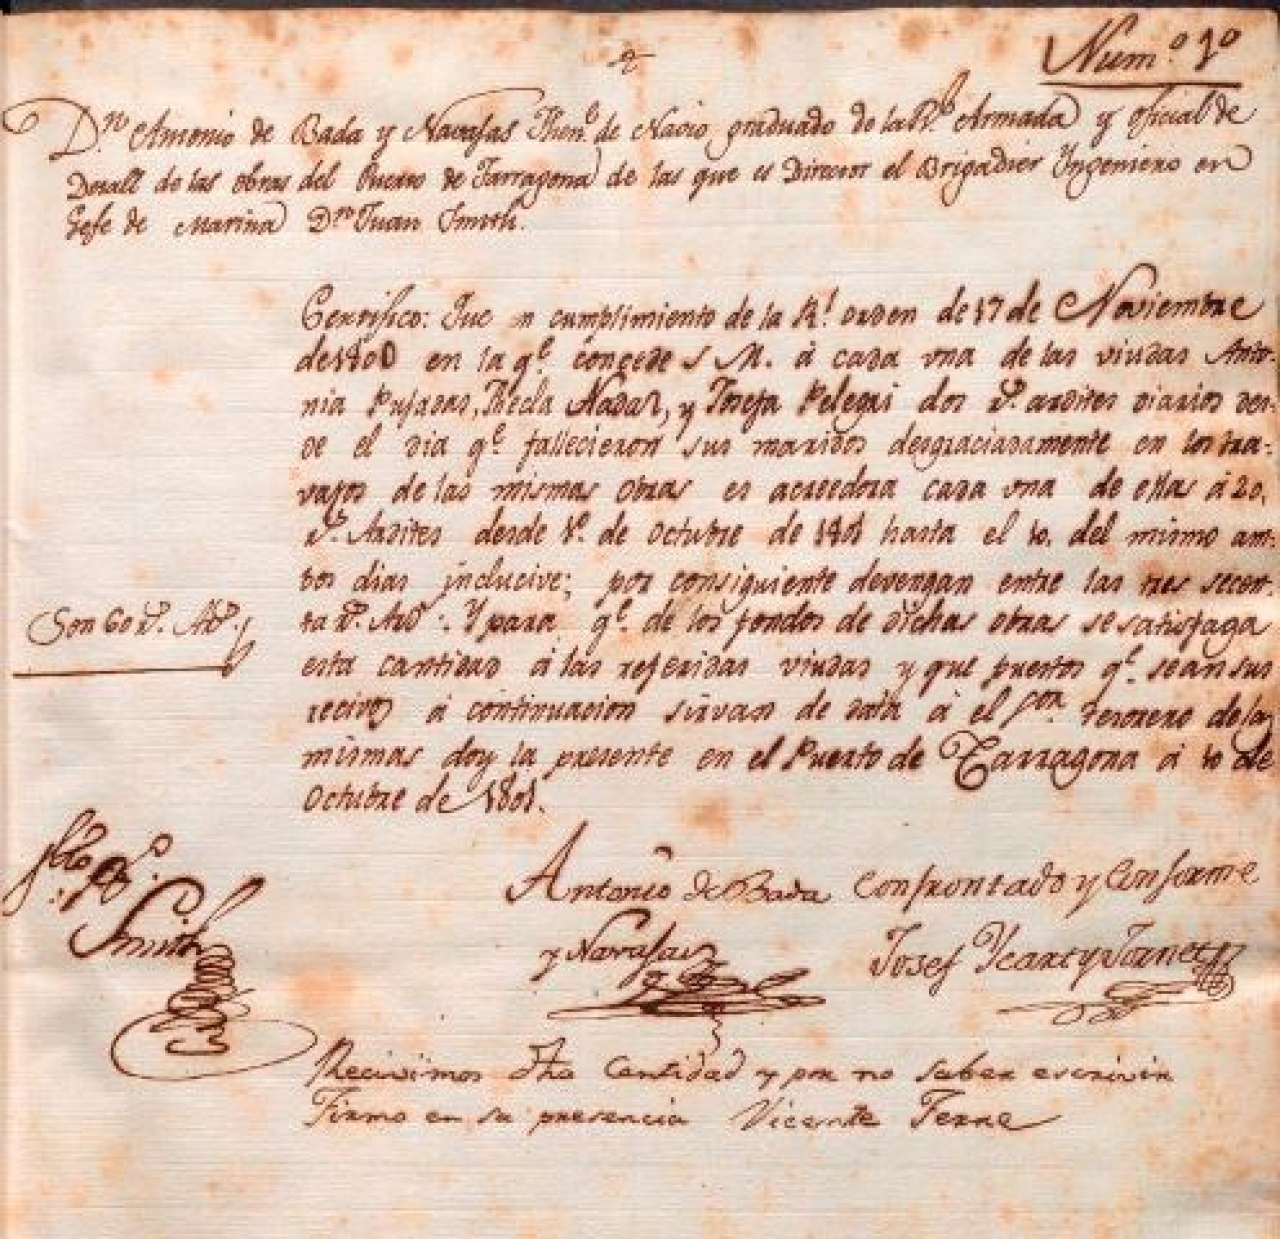 Num.º 1º
D.n Antonio de Bada y Navajas Then.e de Navio graduado de la R.l Armada y oficial de
Detall de las obras del Puerto de Tarragona de las que es Director el Brigadier Yngeniero en
Gefe de Marina D.n Juan Smith.
Certifico: Que en cumplimiento de la R.l orden de 17 de Noviembre
de 1800 en la q.e concede S M. á cada una de las viudas Anto-
nia Pujadas, Thecla Nadal, y Josefa Pelegri dos r.s ardites diarios des-
de el dia q.e fallecieron sus maridos desgraciadamente en los tra-
vajos de las mismas obras es acreedora cada una de ellas á 20,
r.s Ardites desde 1.º de Octubre de 1801 hasta el 10. del mismo am-
bos dias inclucive; por consiguiente devengan entre las tres secen-
ta r.s Ard.s Y para q.e de los fondos de dichas obras se satisfaga
Son 60 r.s Ard.s
esta cantidad á las referidas viudas y que puestos q.e sean sus
recivos á continuacion sirvan de data á el s.or tesorero de las
mismas doy la presente en el Puerto de Tarragona á 10 de
Octubre de 1801.
Smith
Antonio de Bada
y Navajas
Confrontado y Conforme
Josef Ycart y Janet
Recivimos dha Cantidad y por no saber escrivir
Firmo en su presencia Vicente Ferre